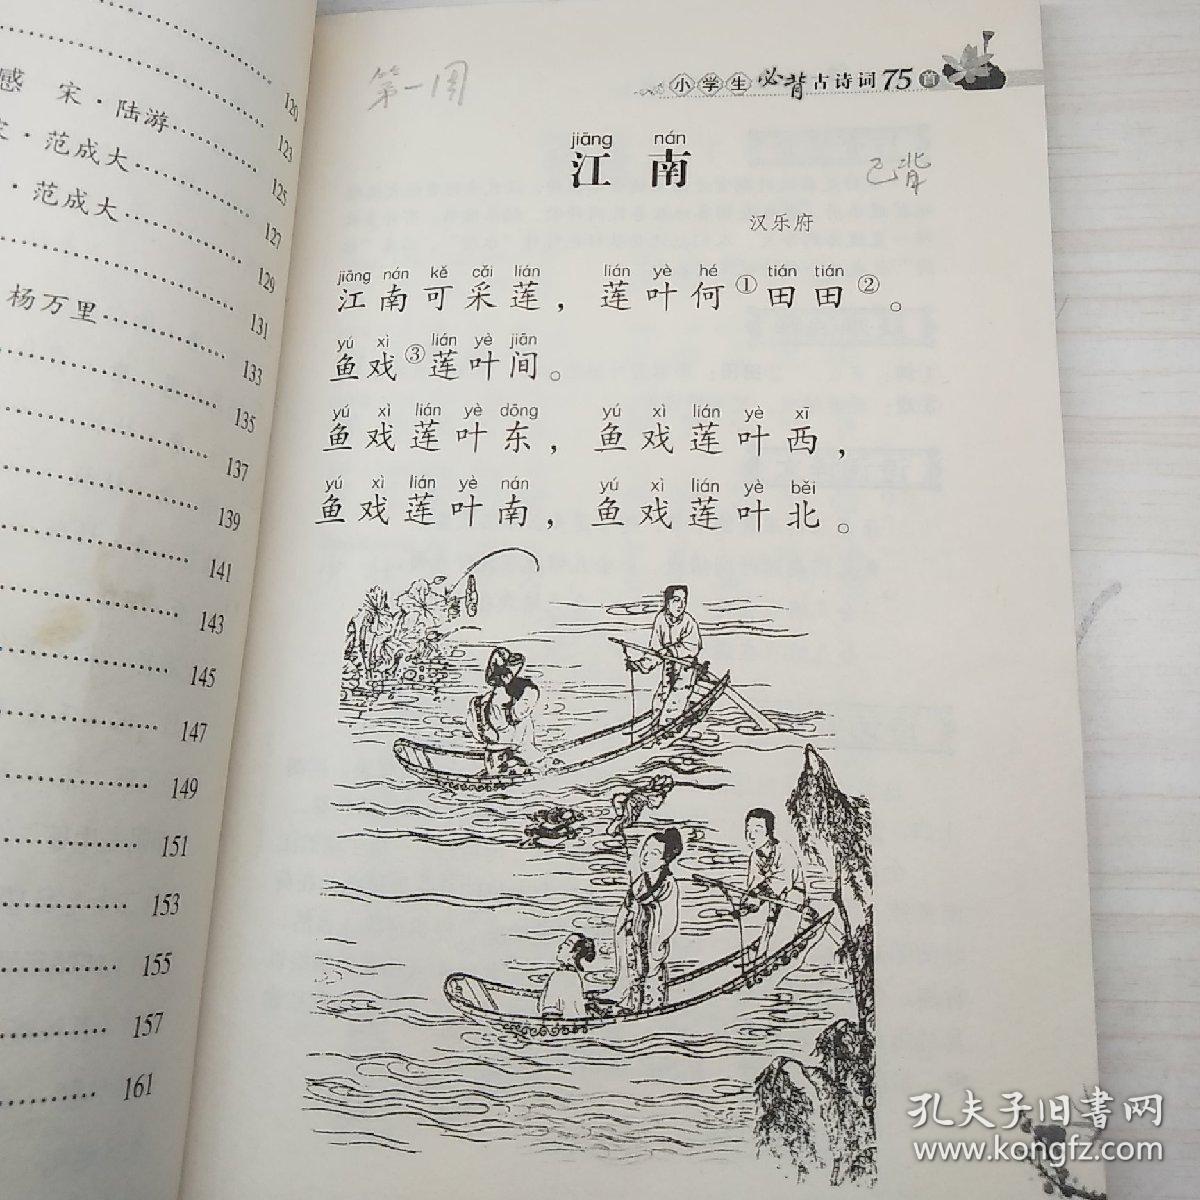 120
感 宋·陆游 123
·范成大 125
·范成大 127
129
杨万里 131
133
135
137
139
141
143
145
147
149
151
153
155
157
161
第一周
小学生必背古诗词75首
jiāng nán
江南
已背
汉乐府
jiāng nán kě cǎi lián lián yè hé tián tián
江南可采莲，莲叶何①田田②。
yú xì lián yè jiān
鱼戏③莲叶间。
yú xì lián yè dōng yú xì lián yè xī
鱼戏莲叶东，鱼戏莲叶西，
yú xì lián yè nán yú xì lián yè běi
鱼戏莲叶南，鱼戏莲叶北。
孔夫子旧书网
www.kongfz.com